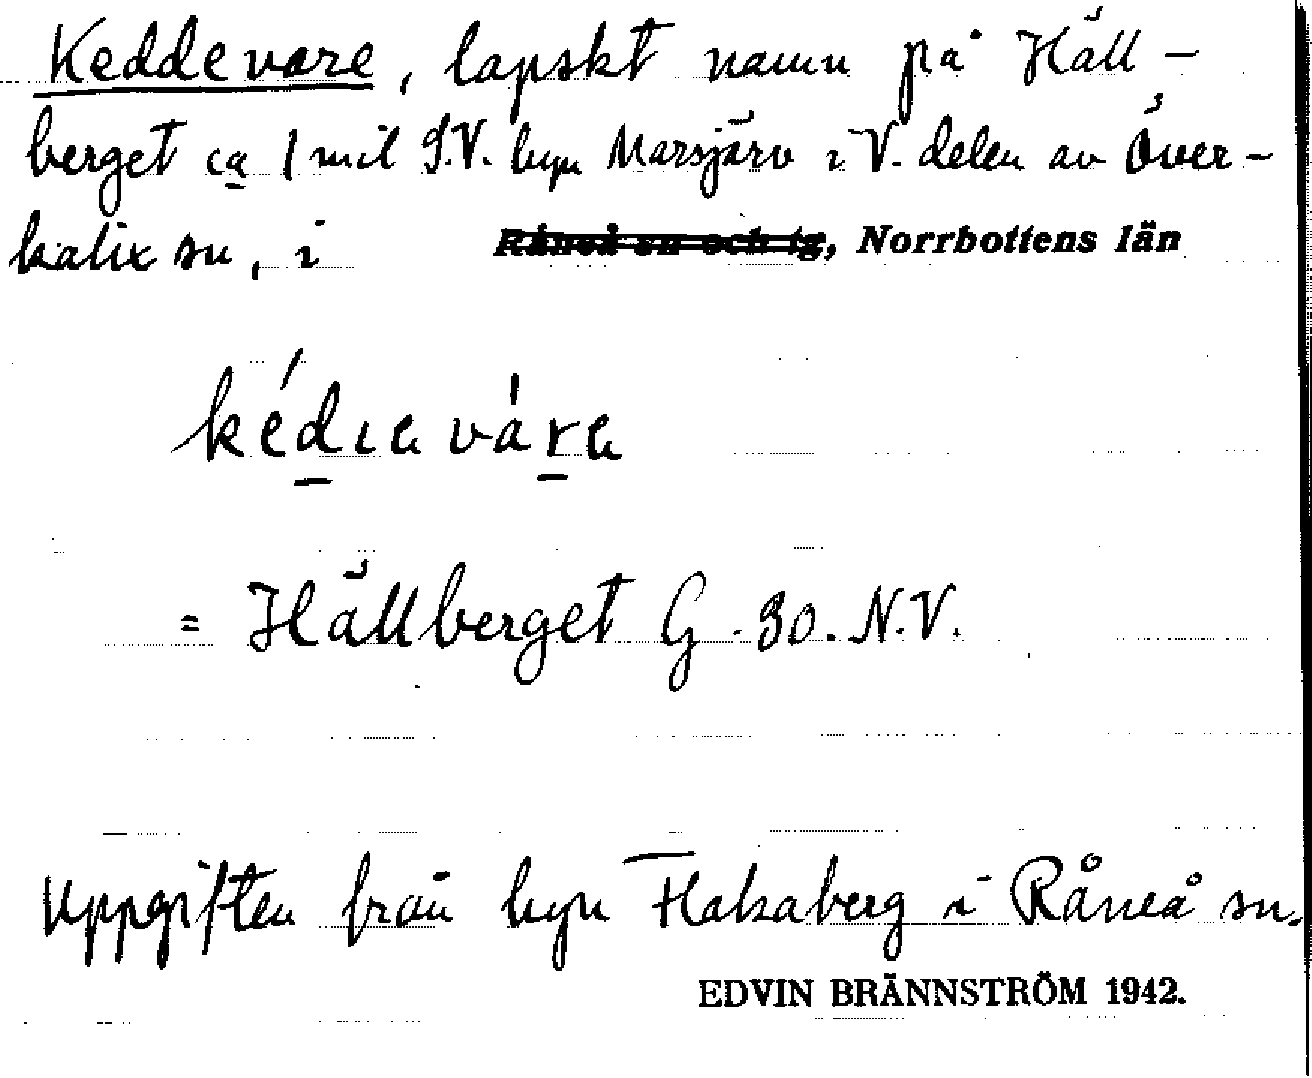 Keddevare, lapskt namn på Häll-
berget ca 1 mil S.V. byn Marsjärv i V. delen av Över-
kalix sn, i Råneå sn och tg, Norrbottens län
kédıa vára
= Hällberget G. 30. N.V.
Uppgiften från byn Flakaberg i Råneå sn.
EDVIN BRÄNNSTRÖM 1942.